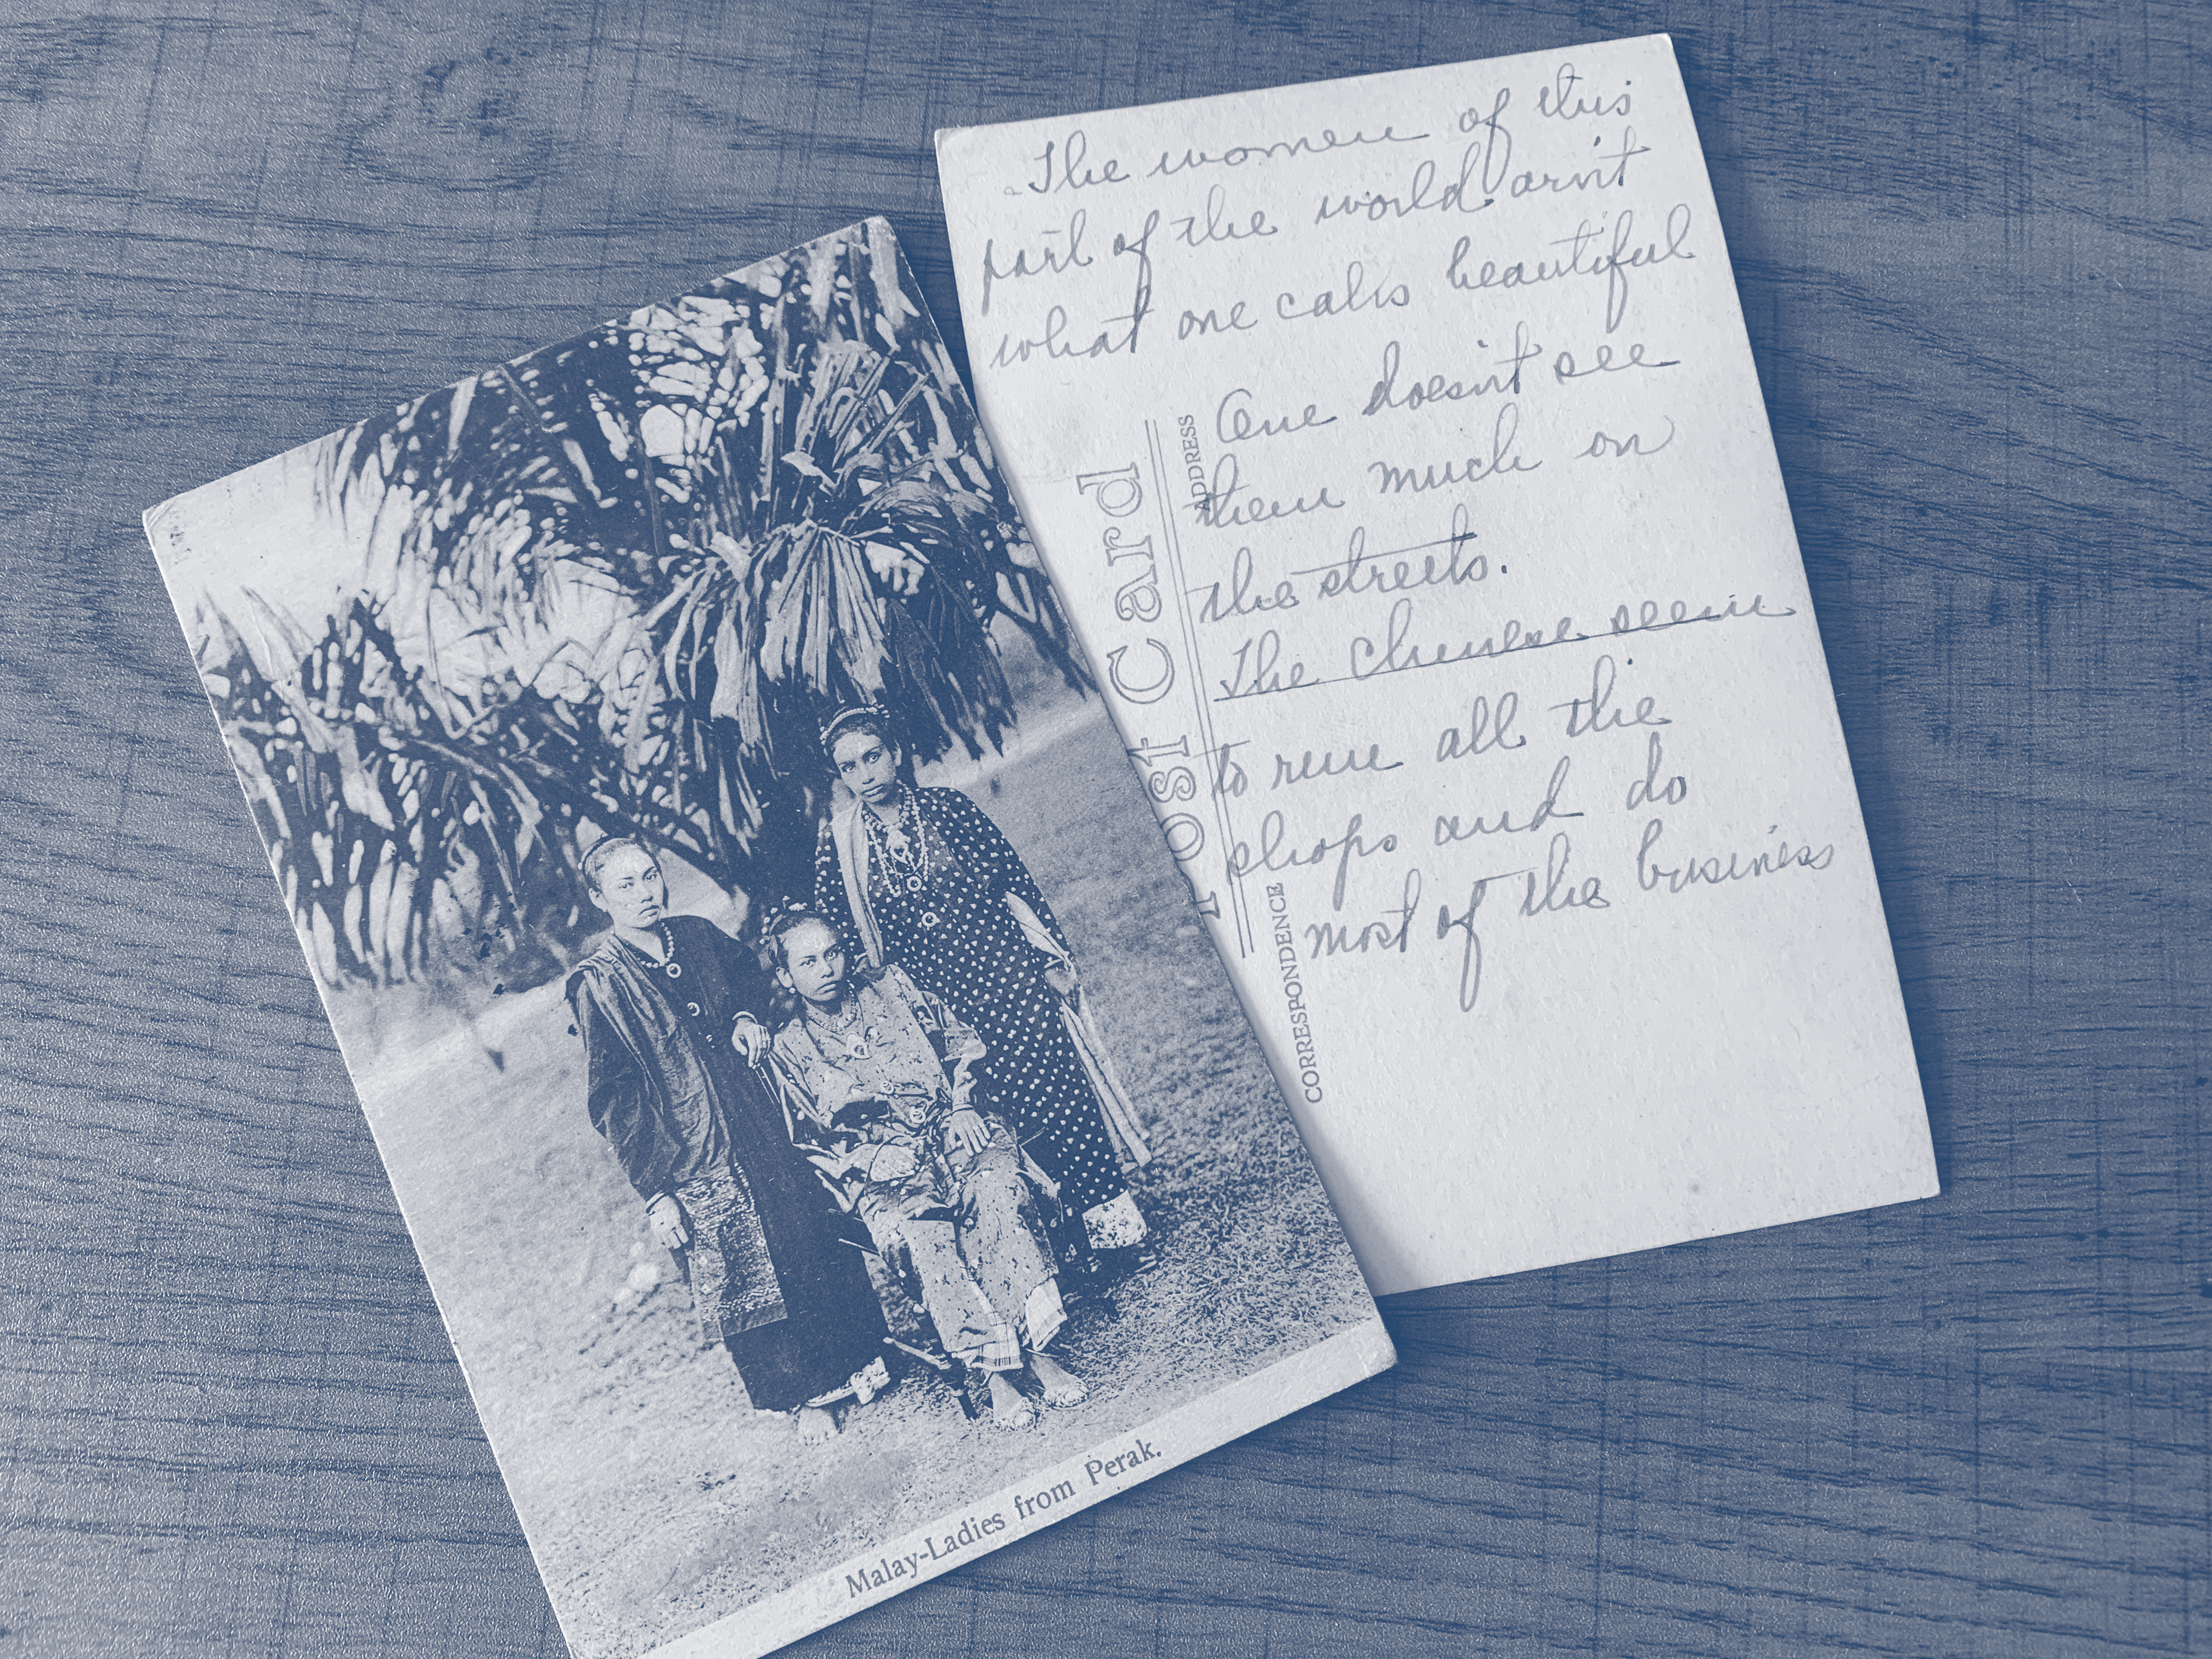 The women of this
part of the world arn't
what one calls beautiful
One doesn't see
them much on
the streets.
The Chinese seem
to run all the
shops and do
most of the business
Post Card
ADDRESS
CORRESPONDENCE
Malay-Ladies from Perak.